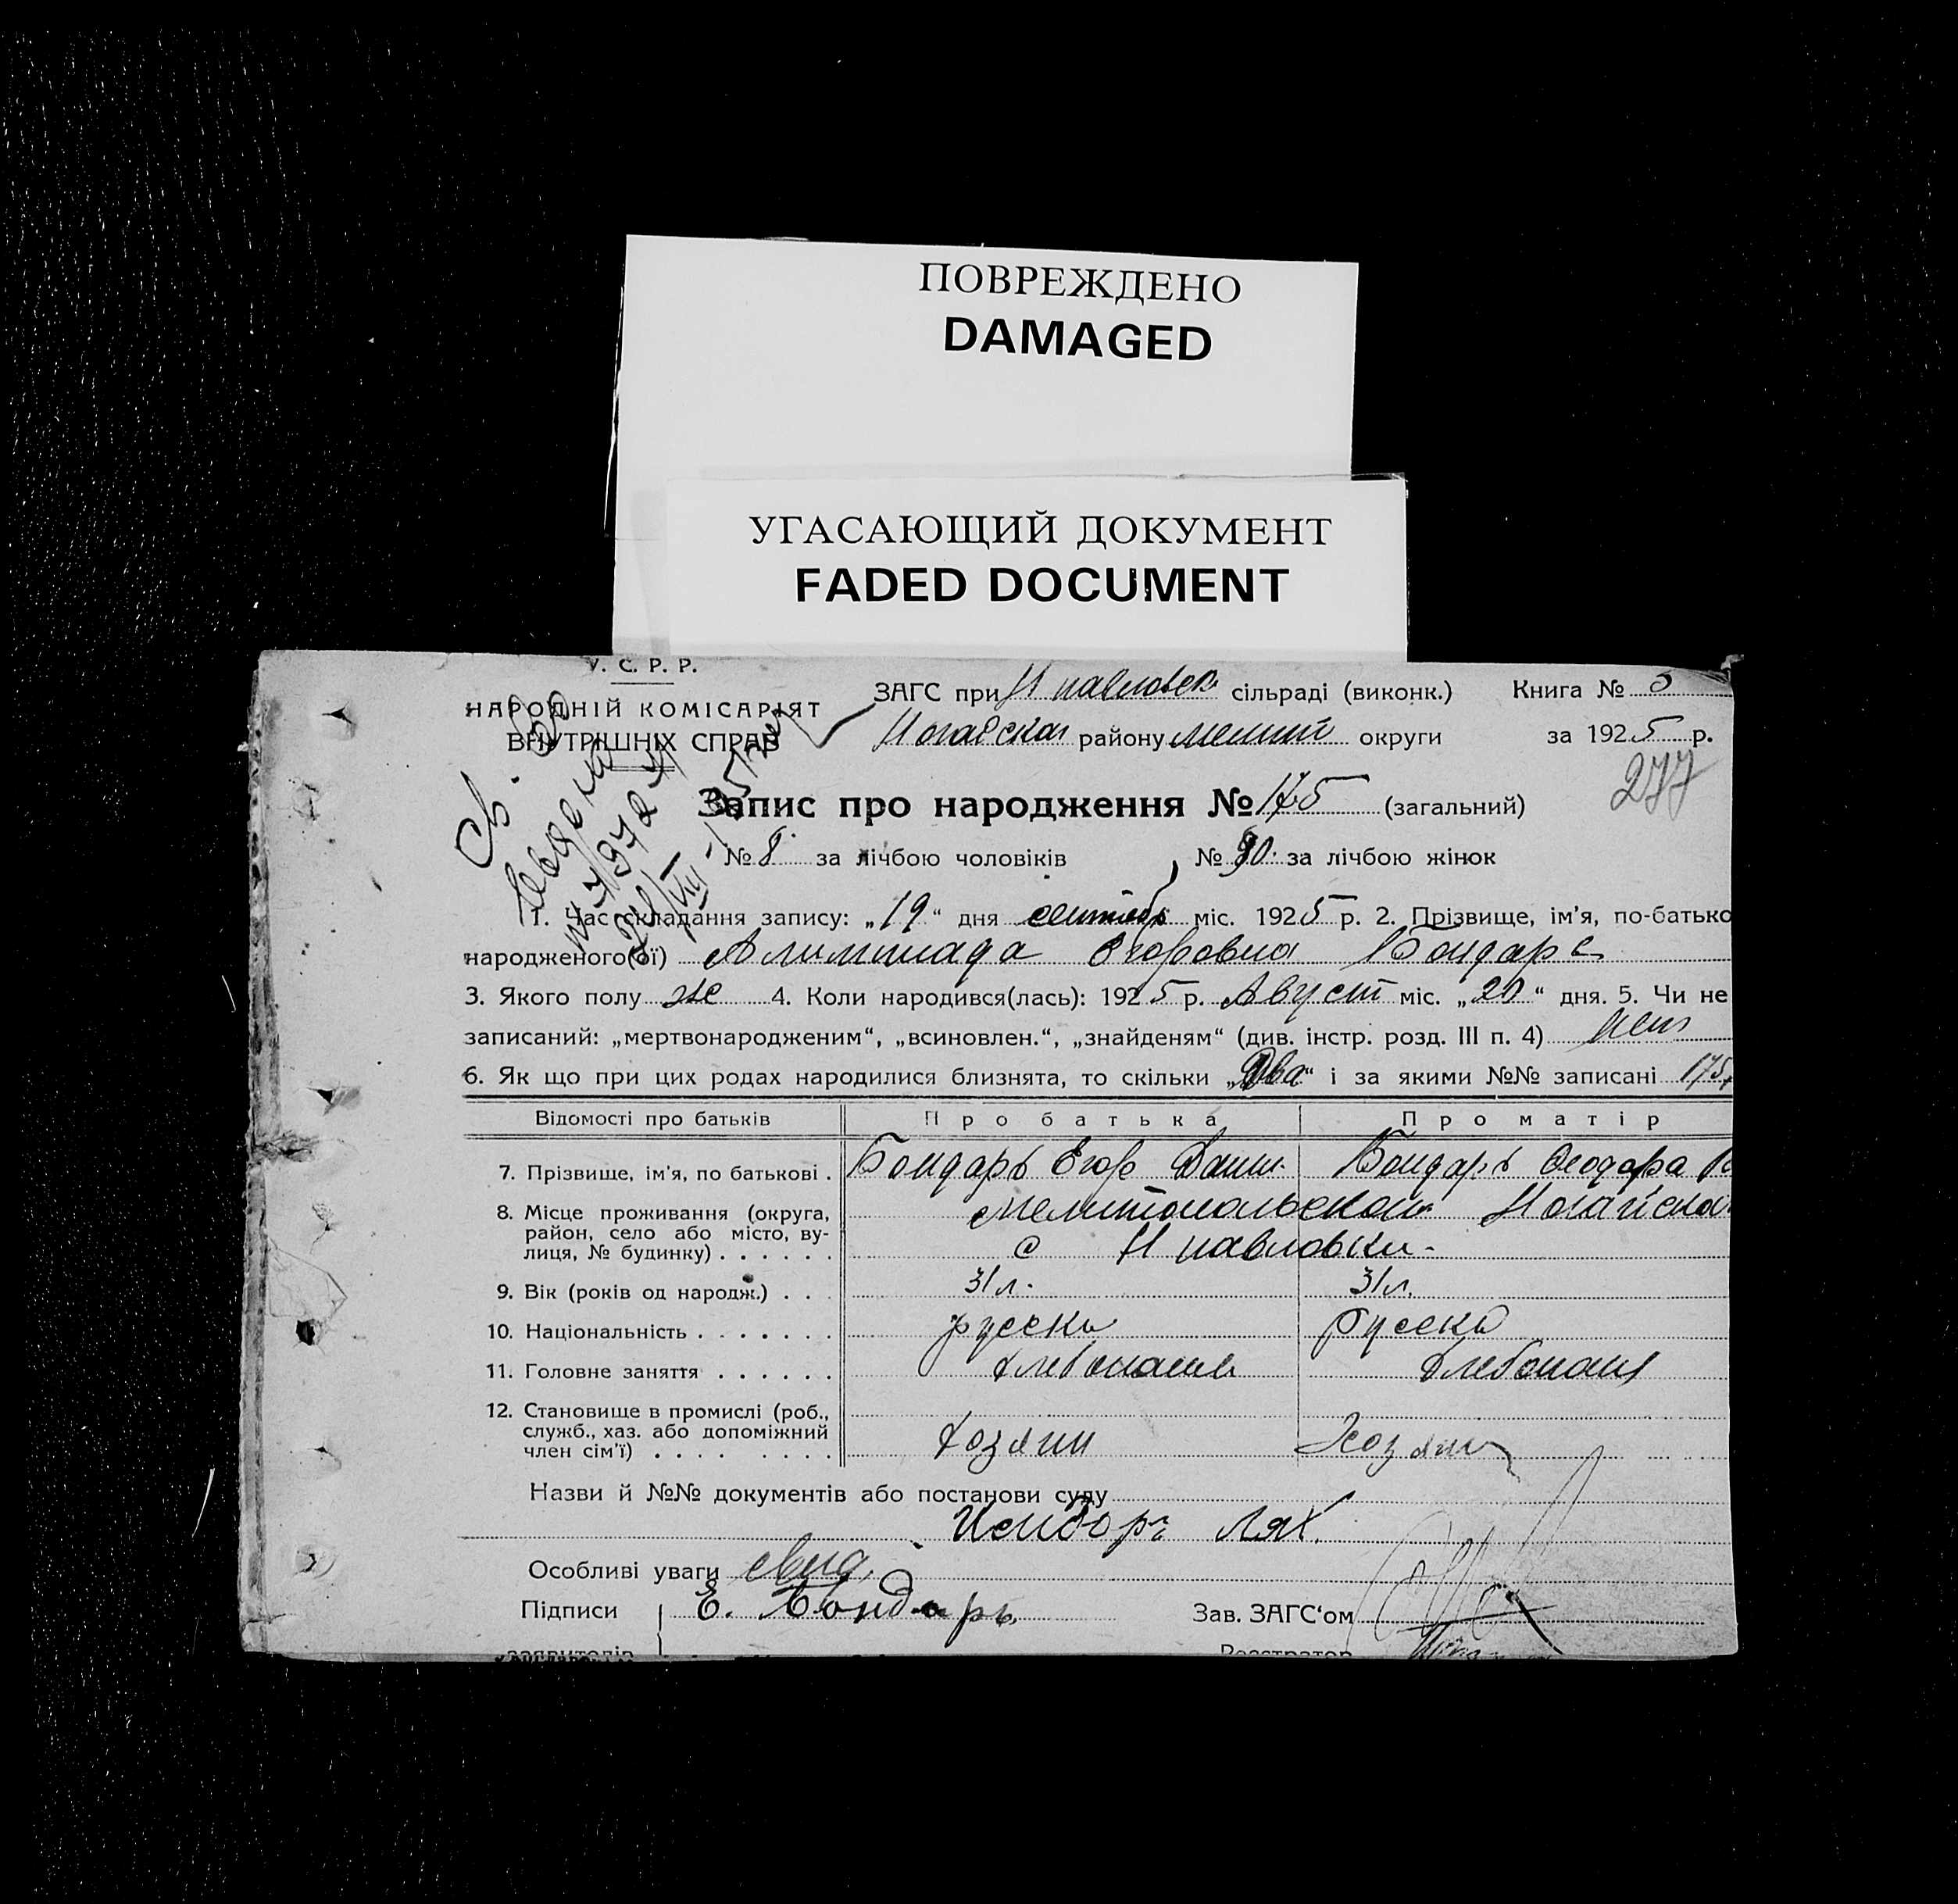 ПОВРЕЖДЕНО
DAMAGED
УГАСАЮЩИЙ ДОКУМЕНТ
FADED DOCUMENT
У. С. Р. Р.
НАРОДНІЙ КОМІСАРІЯТ
ВНУТРІШНІХ СПРАВ
ЗАГС при Н павловск сільраді (виконк.) Книга № 5
Ногайская району мелит округи за 1925 р.
277
Запис про народження № 175 (загальний)
№ 8 за лічбою чоловіків № 90. за лічбою жінок
1. Час складання запису: „19“ дня сентябр міс. 1925 р. 2. Прізвище, ім'я, по-батько
народженого(ої) Алимпиада Егоровна Бондарь
3. Якого полу же 4. Коли народився(лась): 1925 р. Август міс. „20“ дня. 5. Чи не
записаний: „мертвонародженим“, „всиновлен.“, „знайденям“ (див. інстр. розд. III п. 4) нет
6. Як що при цих родах народилися близнята, то скільки „Два“ і за якими №№ записані 175,
Відомості про батьків Про батька Про матір
7. Прізвище, ім'я, по батькові . Бондарь Егор Дани. Бондарь Феодора
8. Місце проживання (округа, район, село або місто, вулиця, № будинку) . . . . . . Мелитопольской Ногайской
с Н павловки.
9. Вік (років од народж.) . . . 31 л. 31 л.
10. Національність . . . . . . . русски Русски
11. Головне заняття . . . . . . хлебопашь хлебопаш
12. Становище в промислі (роб., служб., хаз. або допоміжний член сім'ї) . . . . . . . . хозяин Хозяин
Назви й №№ документів або постанови суду
Лях.
Особливі уваги свид.
Підписи Е. Бондарь Зав. ЗАГС'ом
заявителів Реєстратор